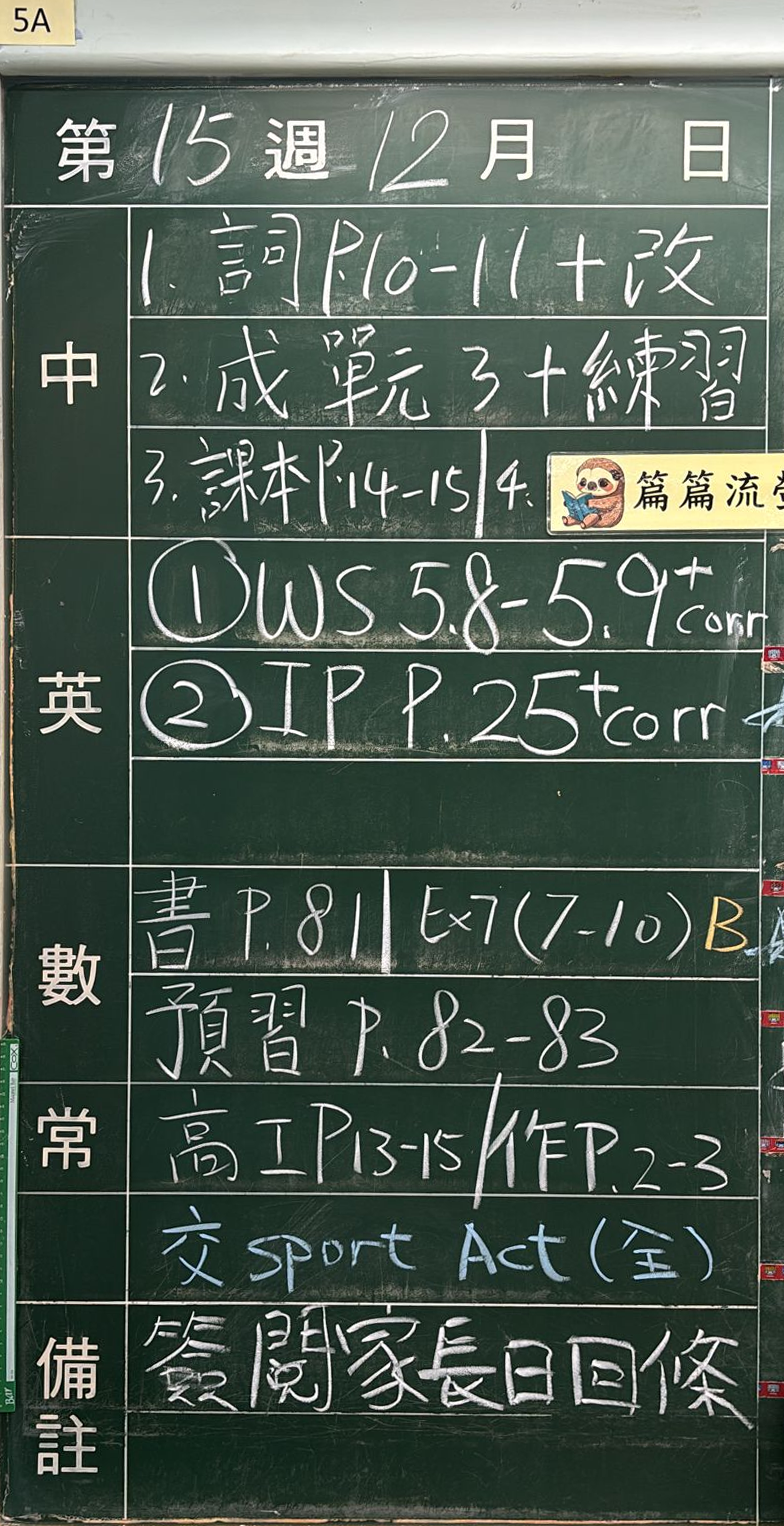 5A
第 15 週 12 月 日
中
1. 詞 P.10-11 + 改
2. 成 單元 3 + 練習
3. 課本 P.14-15 | 4.
篇篇流
英
① WS 5.8-5.9 + corr
② IP P.25 + corr
數
書 P.81 | Ex7 (7-10) B
預習 P. 82-83
常
高 IP13-15 / 作 P.2-3
交 sport Act (全)
備註
簽閱家長日回條